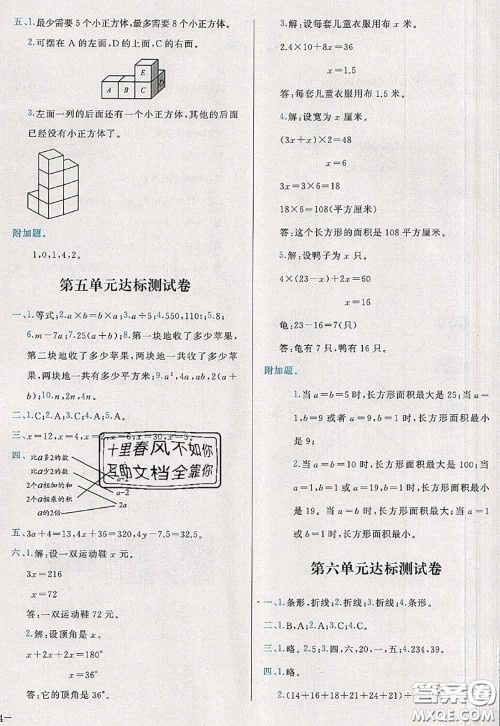 五、1.最少需要5个小正方体,最多需要8个小正方体。
2.可摆在A的左面,D的上面,C的右面。
E
A B C D
3.左面一列的后面还有一个小正方体,其他的后面
已经没有小正方体了。
附加题。
1,0,1,4,2。
第五单元达标测试卷
一、1.等式;2.a×b=b×a;3.a÷5;4.550,110t;5.8;
6.m-7a;7.25(a+b);8.第一块地收了多少苹果,
第二块地收了多少苹果,两块地一共收了多少苹果,
两块地一共有多少平方米;9.a²,a²-ab,a(a-
b);10.n,2n,4n。
二、1.C;2.A;3.C;4.A;5.A。
三、x=12,x=4,x=
四、
比a多2的数
比a少2的数
2个a相加的和
2个a相乘的积
a的2倍
a-2
2a
十里春风不如你
互助文档全靠你
五、3a+4=13,4x+x=320,y-7.5=32.5。
六、1.解:设一双运动鞋x元。
3x=216
x=72
答:一双运动鞋72元。
2.解:设顶角是x。
x+2x+2x=180°
x=36°
答:它的顶角是36°。
3.解:设每套儿童衣服用布x米。
2.4×10+8x=36
x=1.5
答:每套儿童衣服用布1.5米。
4.解:设宽为x厘米。
(3x+x)×2=48
x=6
3x=3×6=18
18×6=108(平方厘米)
答:这个长方形的面积是108平方厘米。
5.解:设鸭子为x只。
4×(23-x)+2x=60
x=16
龟:23-16=7(只)
答:龟有7只,鸭有16只。
附加题。
1.当a=b=5时,长方形面积最大是25;当a=1,
b=9或者a=9,b=1时,长方形面积最小是9。
2.当a=b时,长方形面积最大,当a=1或者b=
1时,长方形面积最小。
第六单元达标测试卷
一、1.条形,折线;2.折线;3.折线;4.条形,折线。
二、1.B,A;2.A;3.C;4.C。
三、1.略。2.5,四,六,一,20,40;3.四,234,39。
四、1.略。
2.(14+16+18+21+24+24+21)÷
MXQE.COM